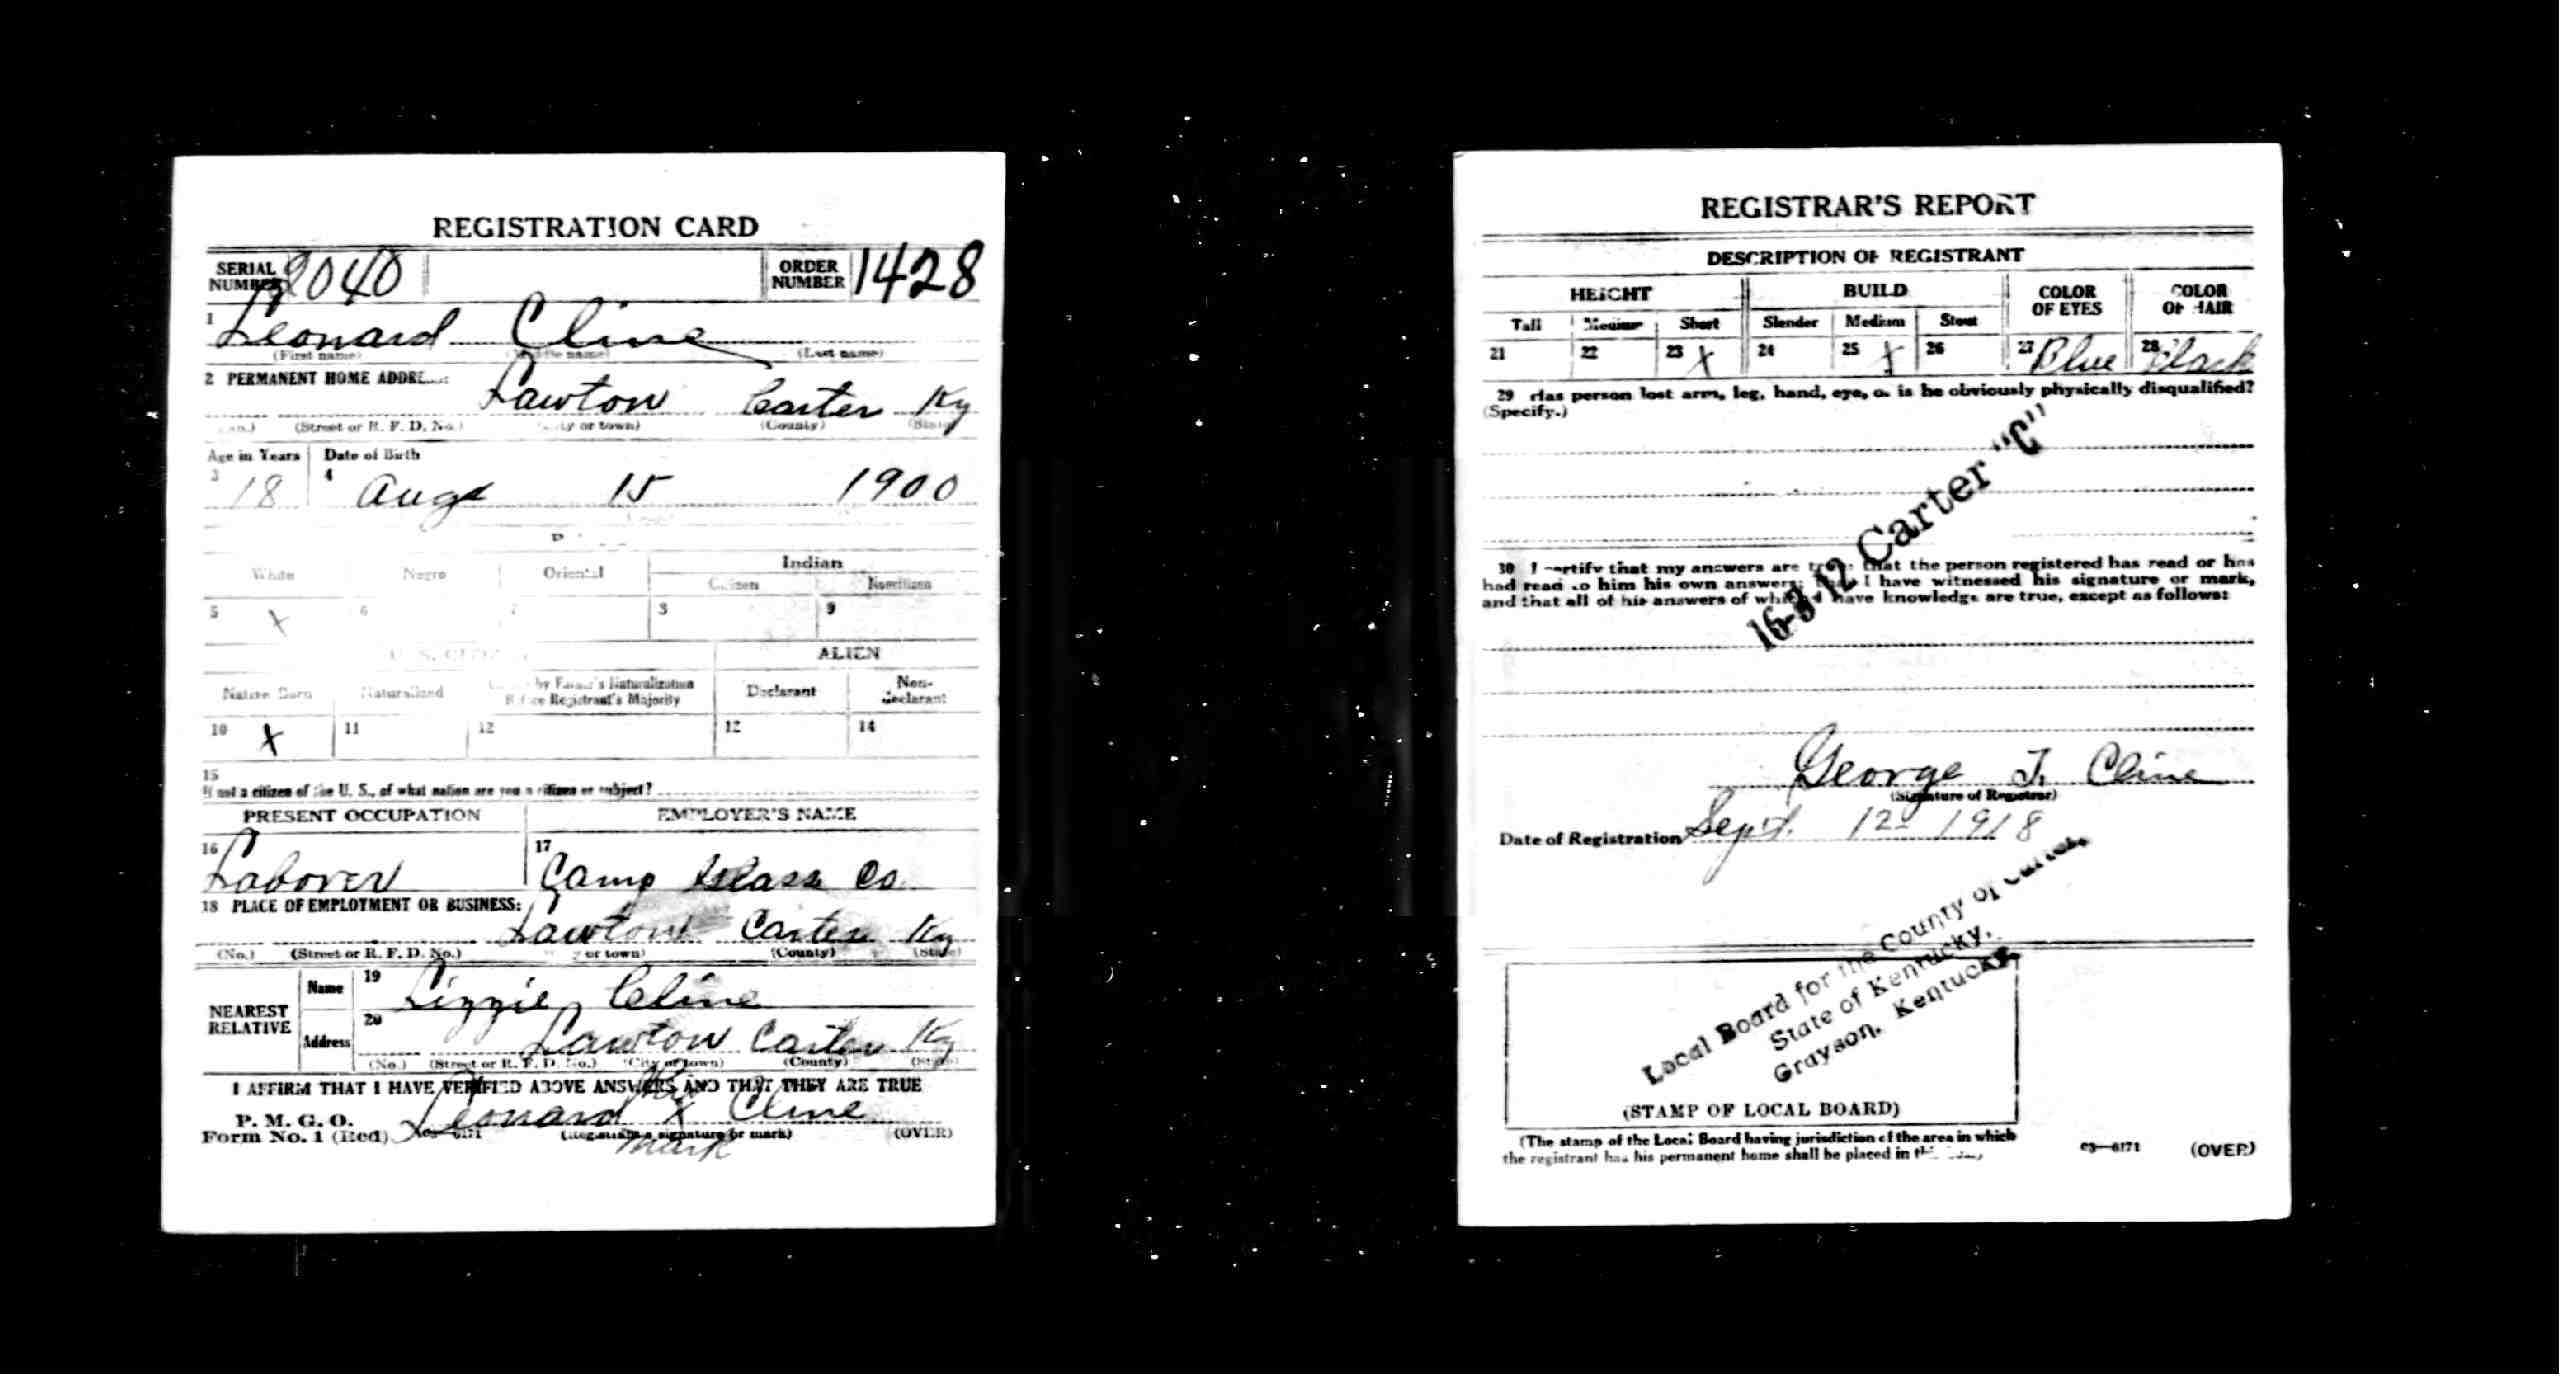 REGISTRATION CARD
SERIAL NUMBER 2040 ORDER NUMBER 1428
1 Leonard Cline
(First name) (Middle name) (Last name)
2 PERMANENT HOME ADDRE
Lawton Carter Ky
(Street or R. F. D. No.) (County)
Age in Years Date of Birth
3 18 4 Aug 15 1900
Indian
White Negro Oriental Citizen Noncitizen
5 X 6 7 8 9
U. S. CITIZ ALIEN
Native Born Naturalized by Father's Naturalization Before Registrant's Majority Declarant Non-declarant
10 X 11 12 12 14
15
If not a citizen of the U. S., of what nation are you a citizen or subject?
PRESENT OCCUPATION EMPLOYER'S NAME
16 Laborer 17 Camp Glass Co
18 PLACE OF EMPLOYMENT OR BUSINESS:
Lawton Carter Ky
(No.) (Street or R. F. D. No.) or town) (County) (State)
NEAREST RELATIVE Name 19 Lizzie Cline
Address 20 Lawton Carter Ky
(No.) (Street or R. F. D. No.) (City or town) (County) (State)
I AFFIRM THAT I HAVE VERIFIED ABOVE ANSWERS AND THAT THEY ARE TRUE
P. M. G. O. his
Form No. 1 (Red) Leonard X Cline
(Registrant's signature or mark) (OVER)
mark
REGISTRAR'S REPORT
DESCRIPTION OF REGISTRANT
HEIGHT BUILD COLOR OF EYES COLOR OF HAIR
Tall Medium Short Slender Medium Stout
21 22 23 X 24 25 X 26 27 Blue 28 Black
29 Has person lost arm, leg, hand, eye, or is he obviously physically disqualified?
(Specify.)
16-3-12 Carter "C"
30 I certify that my answers are true that the person registered has read or has
had read to him his own answers; that I have witnessed his signature or mark,
and that all of his answers of which I have knowledge are true, except as follows:
George T. Cline
(Signature of Registrar)
Date of Registration Sept. 12 1918
Local Board for the County of Carter,
State of Kentucky,
Grayson, Kentucky.
(STAMP OF LOCAL BOARD)
(The stamp of the Local Board having jurisdiction of the area in which
the registrant has his permanent home shall be placed in
03—6171 (OVER)